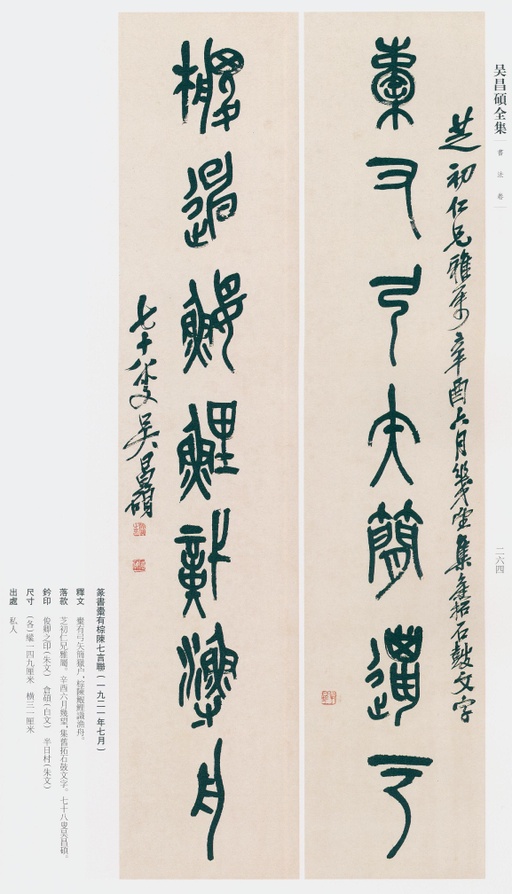 吴昌碩全集
書法卷
二六四
芝初仁兄雅屬辛酉六月幾望集舊拓石鼓文字
橐有弓矢簡獵户
棕陳鰋鯉識漁舟
七十八叟吴昌碩
篆書橐有棕陳七言聯(一九二一年七月)
釋文 橐有弓矢簡獵户,棕陳鰋鯉識漁舟。
落款 芝初仁兄雅屬。辛酉六月幾望,集舊拓石鼓文字。七十八叟吴昌碩。
鈐印 俊卿之印(朱文) 倉碩(白文) 半日村(朱文)
尺寸 (各)縱一四九厘米 橫三一厘米
出處 私人